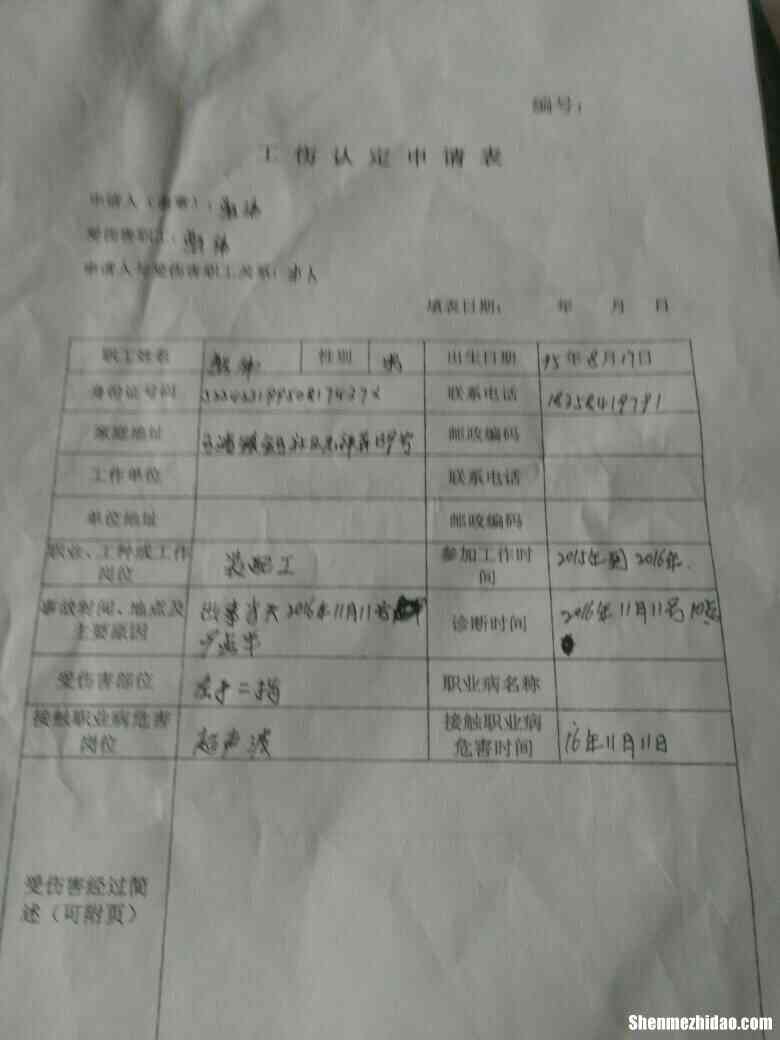 编号：
工伤认定申请表
申请人（盖章）：
受伤害职工：
申请人与受伤害职工关系：本人
填表日期： 年 月 日
职工姓名 性别 男 出生日期 95年8月17日
身份证号码 联系电话 18258419791
家庭地址 邮政编码
工作单位 联系电话
单位地址 邮政编码
职业、工种或工作岗位 装配工 参加工作时间 2015年到2016年.
事故时间、地点及主要原因 2016年11月11号 点半 诊断时间 2016年11月11号10点
受伤害部位 左手二指 职业病名称
接触职业病危害岗位 超声波 接触职业病危害时间 16年11月11日
受伤害经过简述（可附页）
Shenmezhidao.com